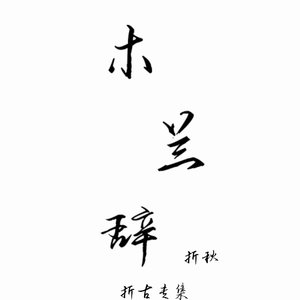 木
兰
辞
折秋
折古专集